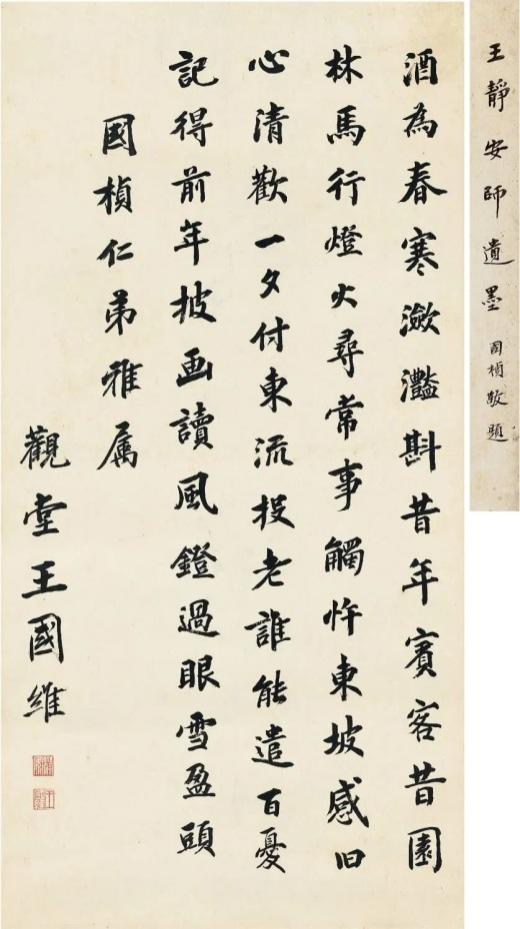 王靜安師遺墨 囯楨敬題
酒為春寒瀲灩斟昔年賓客昔園
林馬行燈火尋常事觸忤東坡感旧
心清歡一夕付東流投老誰能遣百憂
記得前年披画讀風鐙過眼雪盈頭
國楨仁弟雅属
觀堂王國維